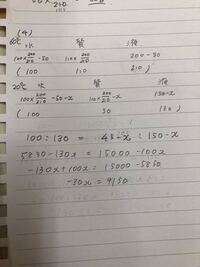 (4)
60℃ 水 質 液
100×200/210-50 110×200/210 200-50
(100 110 210)
20℃ 水 質 液
100×200/210-50-x -x 150-x
(100 30 130)
100:130 = 45-x:150-x
5850-130x = 15000-100x
-130x+100x = 15000-5850
-30x = 9150